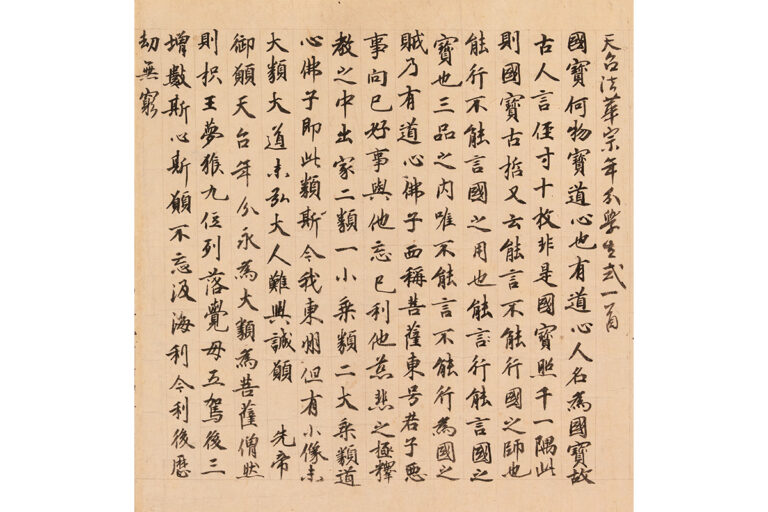 天台法華宗年分學生式一首
國寶何物寶道心也有道心人名為國寶故
古人言徑寸十枚非是國寶照千一隅此
則國寶古哲又云能言不能行國之師也
能行不能言國之用也能行能言國之
寶也三品之内唯不能言不能行為國之
賊乃有道心佛子西稱菩薩東号君子惡
事向己好事與他忘己利他慈悲之極釋
教之中出家二類一小乘類二大乘類道
心佛子即此類斯今我東州但有小像未
大類大道未弘大人難興誠願 先帝
御願天台年分永為大類為菩薩僧然
則枳王夢猴九位列落覺母五駕後三
增數斯心斯願不忘汲海利今利後歷
劫無窮